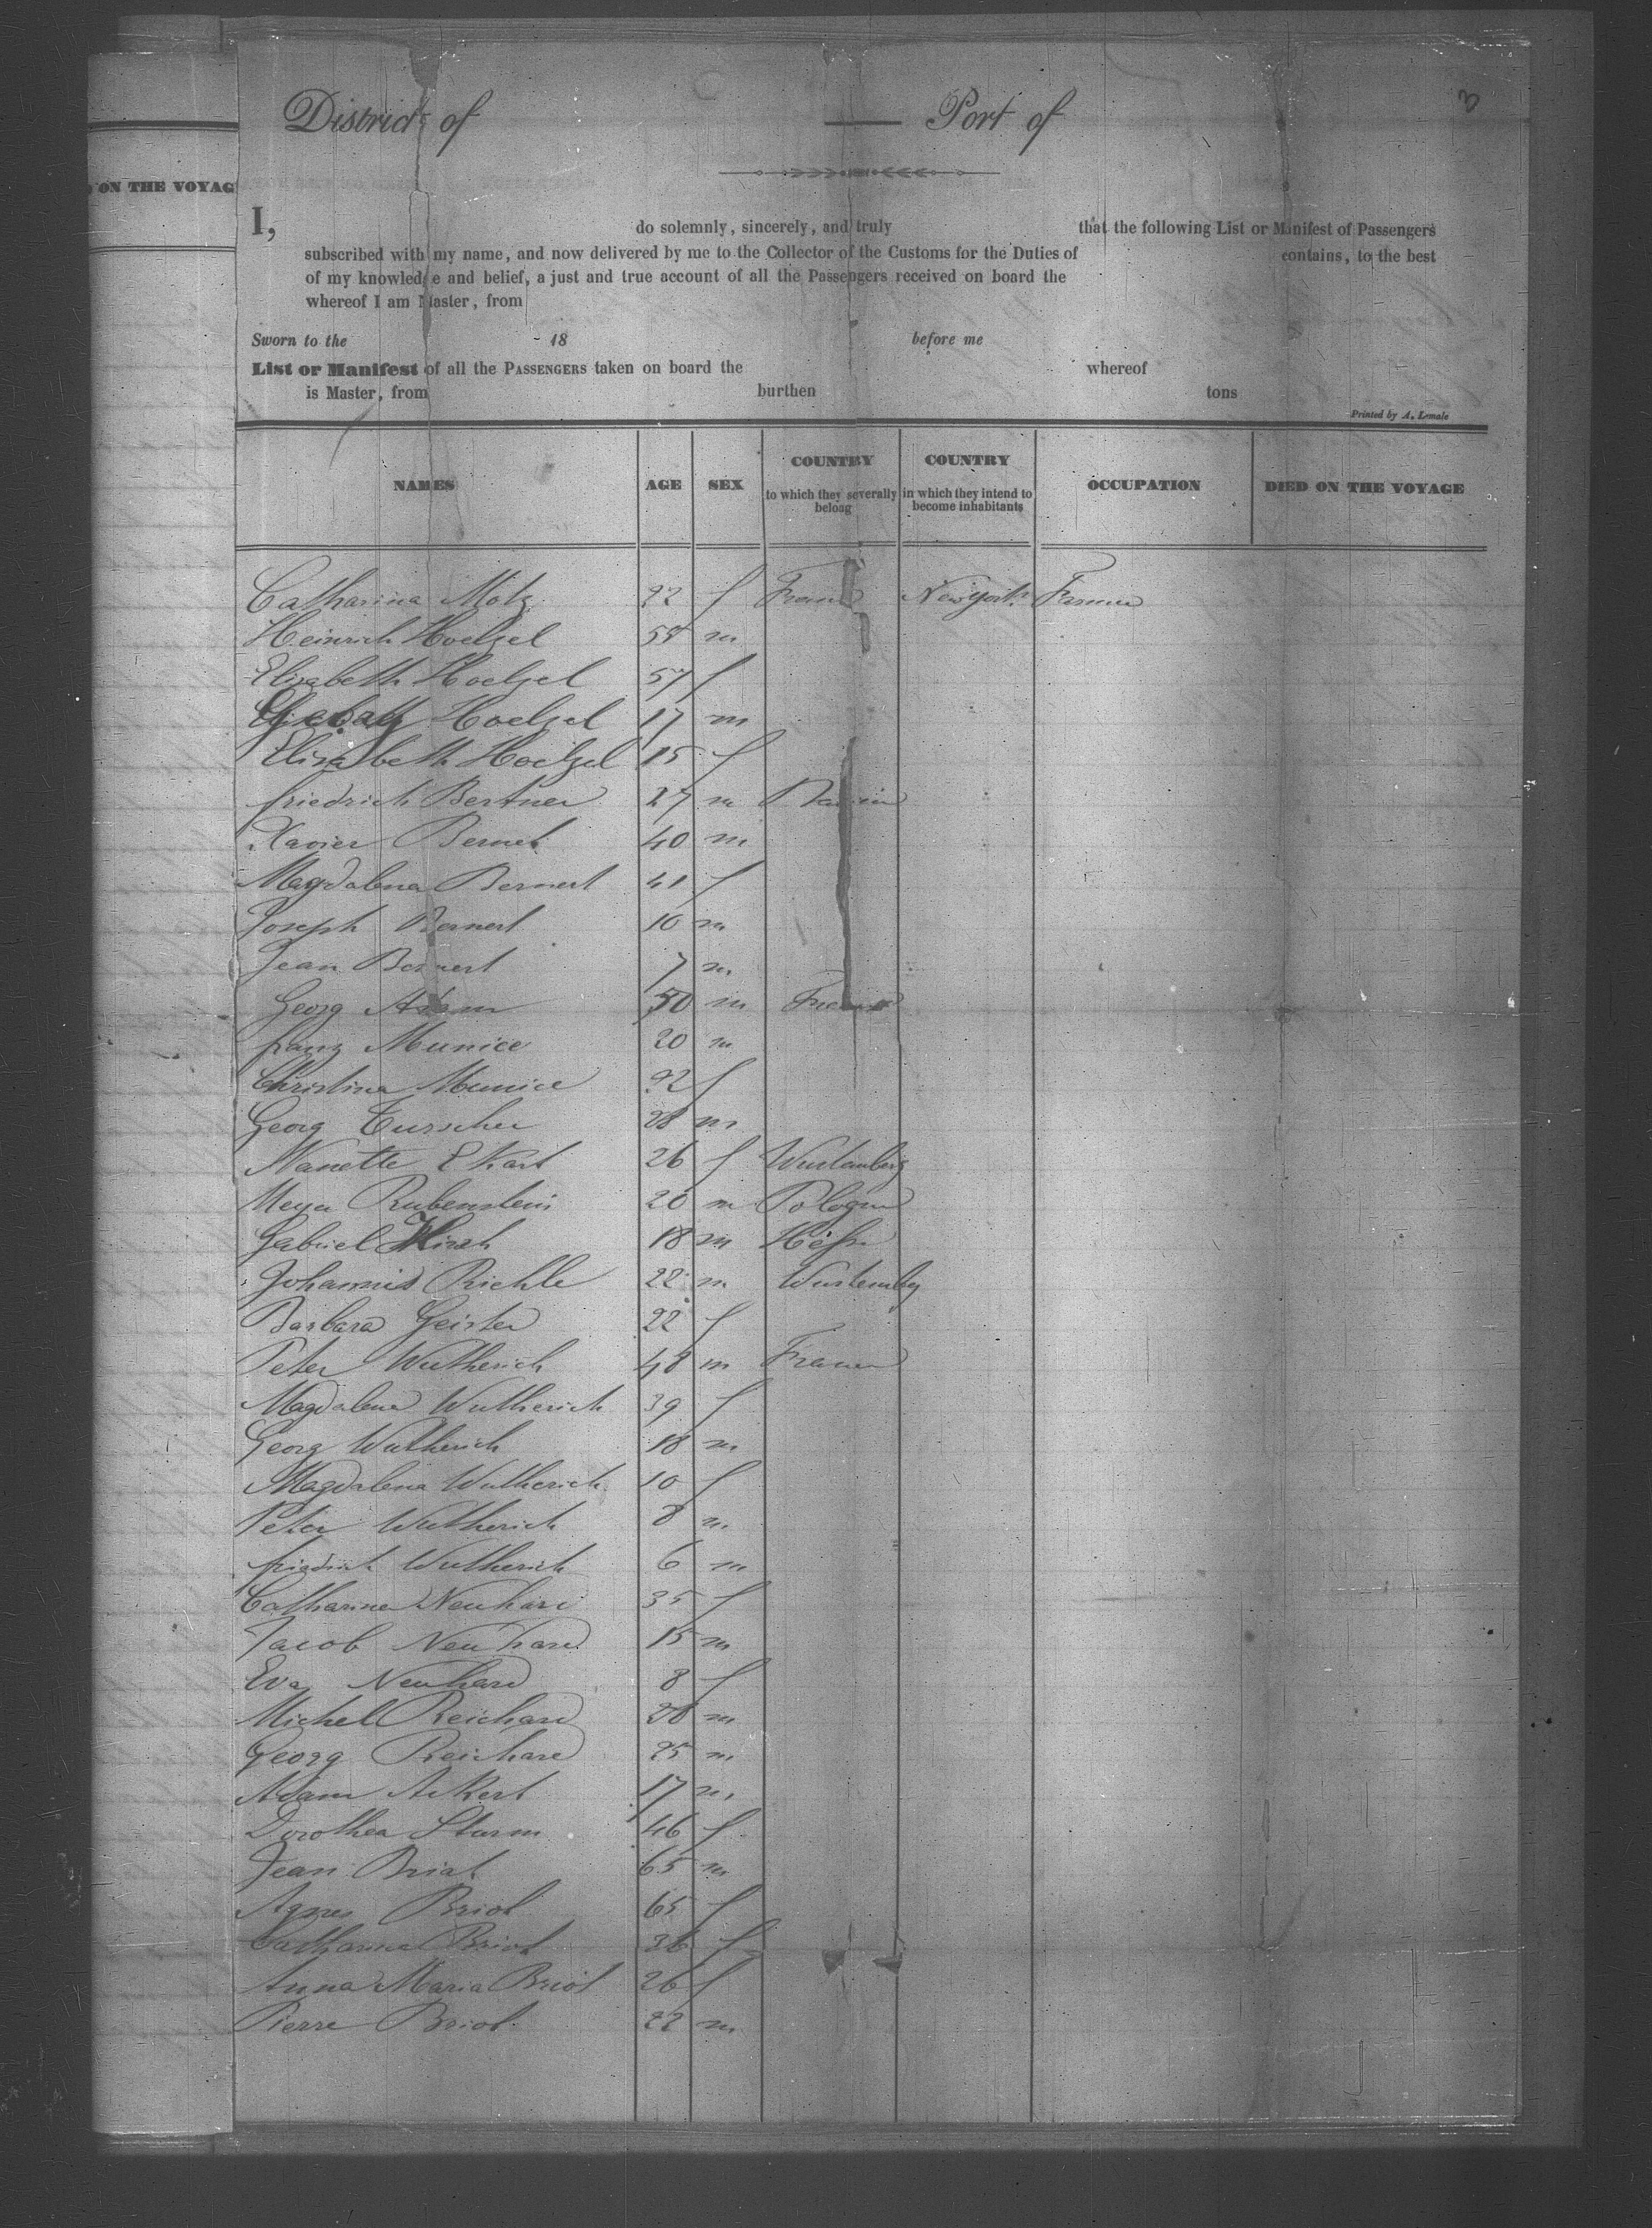 3
District of — Port of
ON THE VOYAG
I, do solemnly, sincerely, and truly that the following List or Manifest of Passengers
subscribed with my name, and now delivered by me to the Collector of the Customs for the Duties of contains, to the best
of my knowledge and belief, a just and true account of all the Passengers received on board the
whereof I am Master, from
Sworn to the 18 before me
List or Manifest of all the PASSENGERS taken on board the whereof
is Master, from burthen tons
Printed by A. Lemale
NAMES AGE SEX COUNTRY to which they severally belong COUNTRY in which they intend to become inhabitants OCCUPATION DIED ON THE VOYAGE
Catharina Motz 22 f France New york Farmer
Heinrich Hoelzel m
Elisabeth Hoelzel 57 f
Hoelzel 17 m
Elisabeth Hoelzel 15 f
friedrich Bertner 27 m
Xavier Bernet 40 m
Magdalena Bernert 41 f
Joseph Bernert 10 m
Jean Bernert 7 m
Georg Adam 50 m France
franz Munice 20 m
Christina Munice 22 f
Georg m
Nanette Ekart 26 f Wurtemberg
Meyer Rubenstein 20 m Pologne
Gabriel Hirsh 18 m Hesse
Johannis Richle 22 m Wurtemberg
Barbara Geister 22 f
Peter Wutherich 48 m France
Magdalena Wutherich 39 f
Georg Wutherich 18 m
Magdalena Wutherich 10 f
Peter Wutherich 8 m
friedrich Wutherich 6 m
Catharina Neuhard 35 f
Jacob Neuhard 15 m
Eva Neuhard 8 f
Michel Reichard 28 m
Georg Reichard 25 m
Adam Ackert 17 m
Dorothea Sturm 46 f
Jean Briot 65 m
Agnes Briot 65 f
Catharina Briot 36 f
Anna Maria Briot 26 f
Pierre Briot 22 m